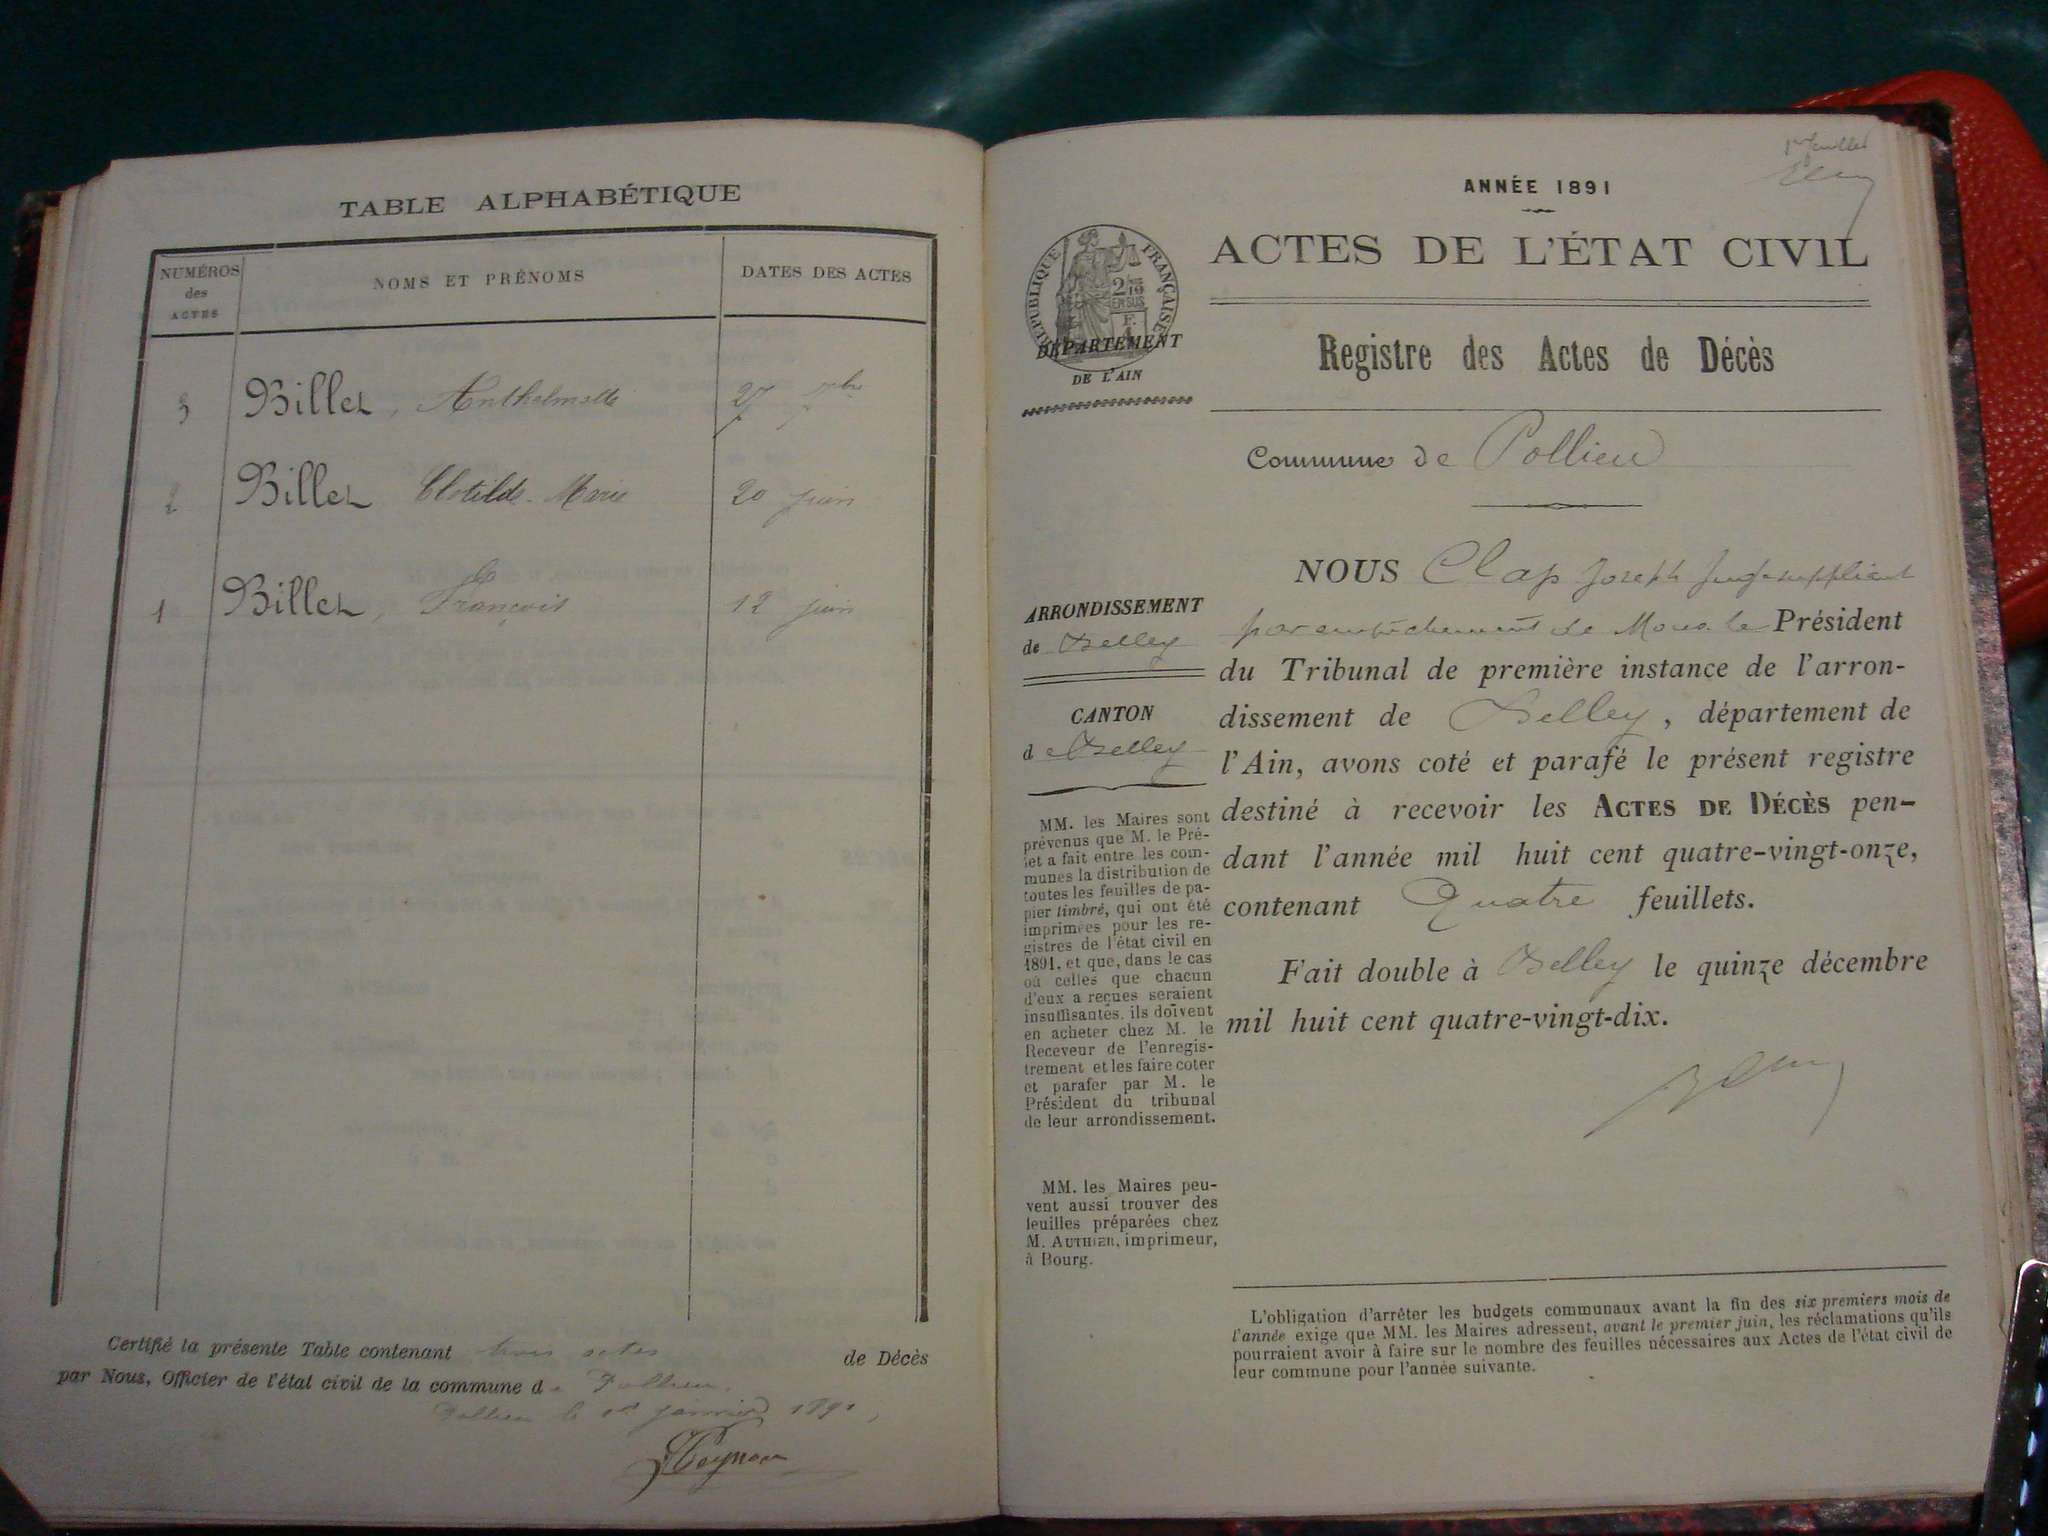 TABLE ALPHABÉTIQUE
NUMÉROS des ACTES
NOMS ET PRÉNOMS
DATES DES ACTES
3 Billet, Anthelmette 27 7bre
2 Billet Clotilde-Marie 20 juin
1 Billet, François 12 juin
Certifié la présente Table contenant trois actes de Décès
par Nous, Officier de l'état civil de la commune de Pollieu.
Pollieu le 1er janvier 1891,
1er feuillet
ANNÉE 1891
ACTES DE L'ÉTAT CIVIL
RÉPUBLIQUE FRANÇAISE
2/10 EN SUS
DÉPARTEMENT
DE L'AIN
Registre des Actes de Décès
Commune de Pollieu
ARRONDISSEMENT
de Belley
CANTON
de Belley
MM. les Maires sont
prévenus que M. le Pré-
fet a fait entre les com-
munes la distribution de
toutes les feuilles de pa-
pier timbré, qui ont été
imprimées pour les re-
gistres de l'état civil en
1891, et que, dans le cas
où celles que chacun
d'eux a reçues seraient
insuffisantes, ils doivent
en acheter chez M. le
Receveur de l'enregis-
trement et les faire coter
et parafer par M. le
Président du tribunal
de leur arrondissement.
MM. les Maires peu-
vent aussi trouver des
feuilles préparées chez
M. AUTHIER, imprimeur,
à Bourg.
NOUS Clap Joseph Juge suppléant
par empêchement de Mons. le Président
du Tribunal de première instance de l'arron-
dissement de Belley, département de
l'Ain, avons coté et parafé le présent registre
destiné à recevoir les ACTES DE DÉCÈS pen-
dant l'année mil huit cent quatre-vingt-onze,
contenant Quatre feuillets.
Fait double à Belley le quinze décembre
mil huit cent quatre-vingt-dix.
L'obligation d'arrêter les budgets communaux avant la fin des six premiers mois de
l'année exige que MM. les Maires adressent, avant le premier juin, les réclamations qu'ils
pourraient avoir à faire sur le nombre des feuilles nécessaires aux Actes de l'état civil de
leur commune pour l'année suivante.